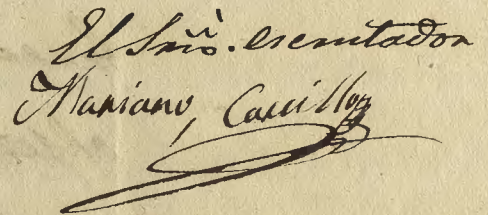 El Srio. escrutador
Mariano, Carrillo